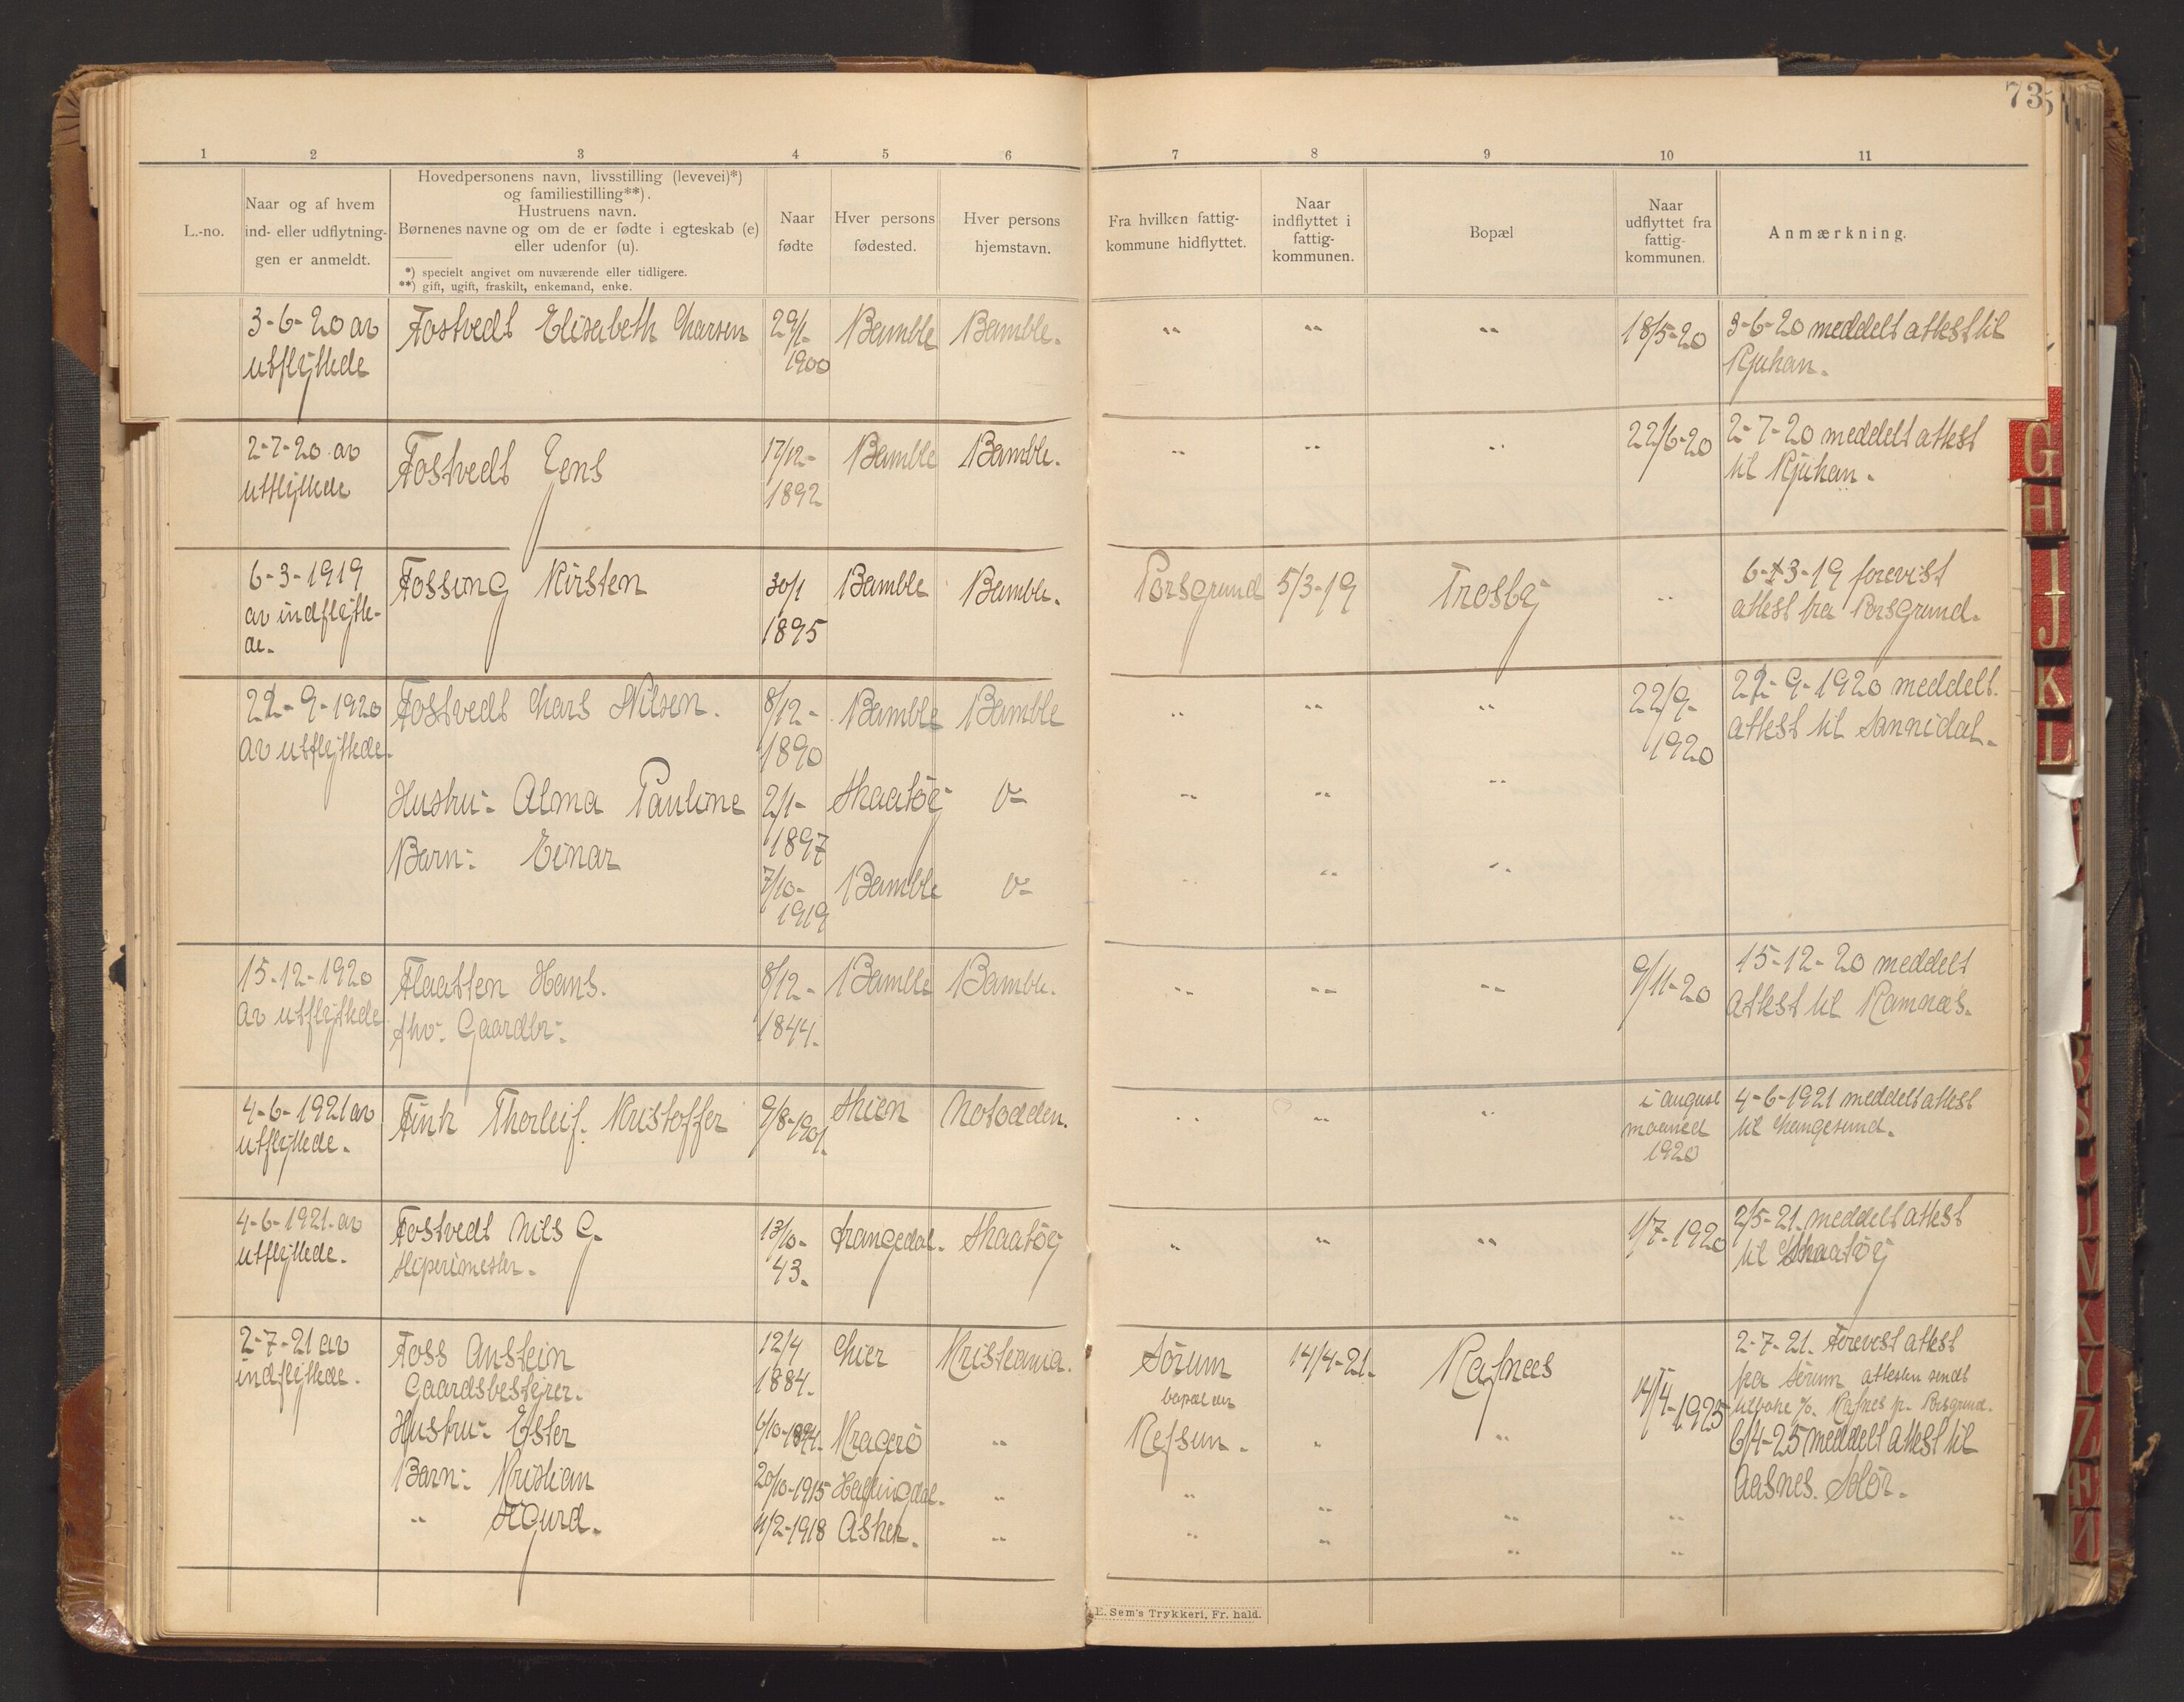 73
1 2 3 4 5 6 7 8 9 10 11
L.-no.
Naar og af hvem
ind- eller udflytning-
gen er anmeldt.
Hovedpersonens navn, livsstilling (levevei)*)
og familiestilling**).
Hustruens navn.
Børnenes navne og om de er fødte i egteskab (e)
eller udenfor (u).
*) specielt angivet om nuværende eller tidligere.
**) gift, ugift, fraskilt, enkemand, enke.
Naar
fødte
Hver persons
fødested.
Hver persons
hjemstavn.
Fra hvilken fattig-
kommune hidflyttet.
Naar
indflyttet i
fattig-
kommunen.
Bopæl
Naar
udflyttet fra
fattig-
kommunen.
Anmærkning.
3-6-20 av
utflyttede
Fostvedt Elisabeth Larsen
29/1-
1900
Bamble
Bamble.
" " "
18/5-20
3-6-20 meddelt attest til
Rjukan.
2-7-20 av
utflyttede
Fostvedt Jens
17/12-
1892
Bamble
Bamble.
" " "
22/6-20
2-7-20 meddelt attest
til Rjukan.
6-3-1919
av indflytte-
de.
Fossing Kirsten
30/1
1895
Bamble
Bamble.
Porsgrund
5/3-19
Trosby
"
6-3-19 forevist
attest fra Porsgrund.
22-9-1920
av utflyttede.
Fostvedt Lars Nilsen.
8/12-
1890
Bamble
Bamble
" " "
22/9-
1920
22-9-1920 meddelt.
attest til Sannidal.
Hustru: Alma Pauline
2/1-
1897
Skaatöy
" " "
Barn: Einar
7/10-
1919
Bamble
" " "
15-12-1920
av utflyttede
Flaatten Hans.
fhv. Gaardbr.
8/12-
1844.
Bamble
Bamble.
" " "
9/11-20
15-12-20 meddelt
attest til Ramnæs.
4-6-1921 av
utflyttede.
Fink Thorleif Kristoffer
9/8-1901.
Skien
Notodden.
" " "
i august
maaned
1920
4-6-1921 meddelt attest
til Langesund.
4-6-1921. av
utflyttede.
Fostvedt Nils G.
Sliperimester.
13/10-
43.
Drangedal.
Skaatöy
" " "
1/7-1920
2/5-21. meddelt attest
til Skaatöy
2-7-21 av
indflyttede.
Foss Anstein
Gaardsbestyrer.
12/4
1884.
Lier
Kristiania.
Sörum
14/4-21.
Rafnæs
14/4-1925
2-7-21. Forevist attest
fra Sörum attesten sendt
tilbake %. Rafnes pr. Porsgrund.
Hustru: Ester
6/10-1894.
Kragerö
"
Refsum.
" "
6/4-25 meddelt attest til
Aasnes. Solör.
Barn: Kristian
20/10-1915
Hallingdal.
" " " " "
" Sigurd.
4/2-1918
Asker.
" " " " "
E. Sem's Trykkeri, Fr. hald.
G
H
I
J
K
L